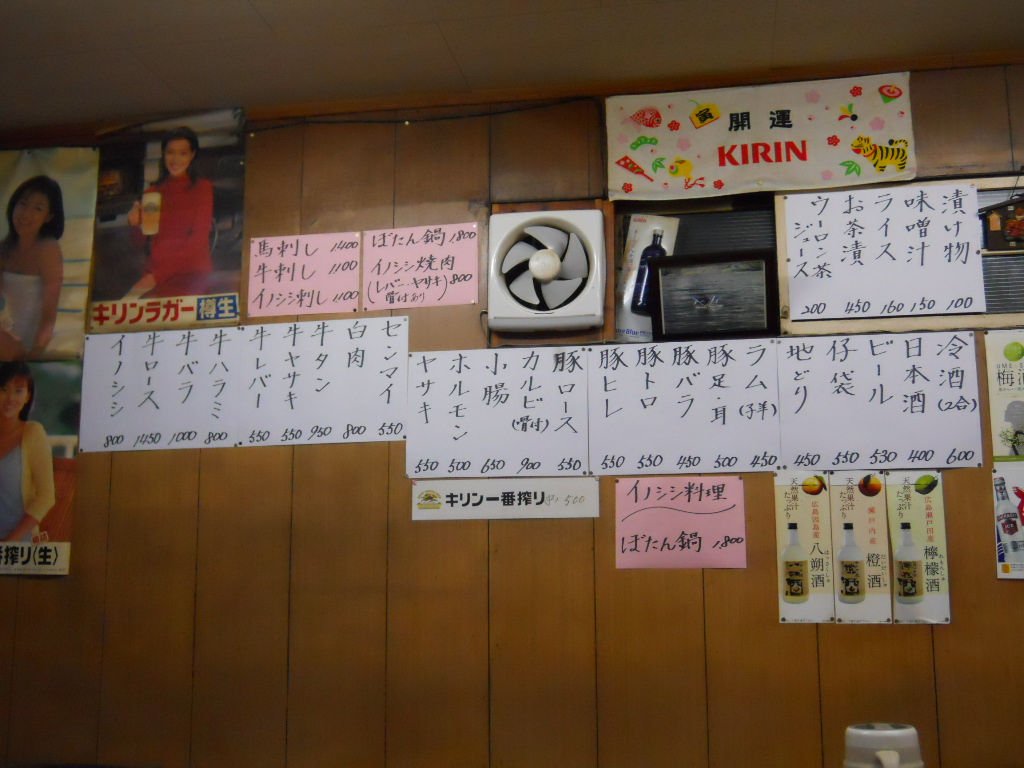 寅
開運
KIRIN
漬け物 100
味噌汁 150
ライス 160
お茶漬 450
ウーロン茶
ジュース 200
馬刺し 1400
牛刺し 1100
イノシシ刺し 1100
ぼたん鍋 1,800
イノシシ焼肉 800
(レバー・ヤサキ
骨付あり)
キリンラガー 樽生
冷酒(2合) 600
日本酒 400
ビール 530
仔袋 550
地どり 450
ラム(子羊) 450
豚足・耳 500
豚バラ 450
豚トロ 550
豚ヒレ 550
豚ロース 550
カルビ(骨付) 900
小腸 650
ホルモン 500
ヤサキ 550
センマイ 550
白肉 800
牛タン 950
牛ヤサキ 550
牛レバー 550
牛ハラミ 800
牛バラ 1000
牛ロース 1450
イノシシ 800
キリン一番搾り 500
イノシシ料理
ぼたん鍋 1,800
天然果汁たっぷり
広島瀬戸田産
檸檬酒
天然果汁たっぷり
瀬戸内産
橙酒
天然果汁たっぷり
広島因島産
八朔酒
搾り〈生〉